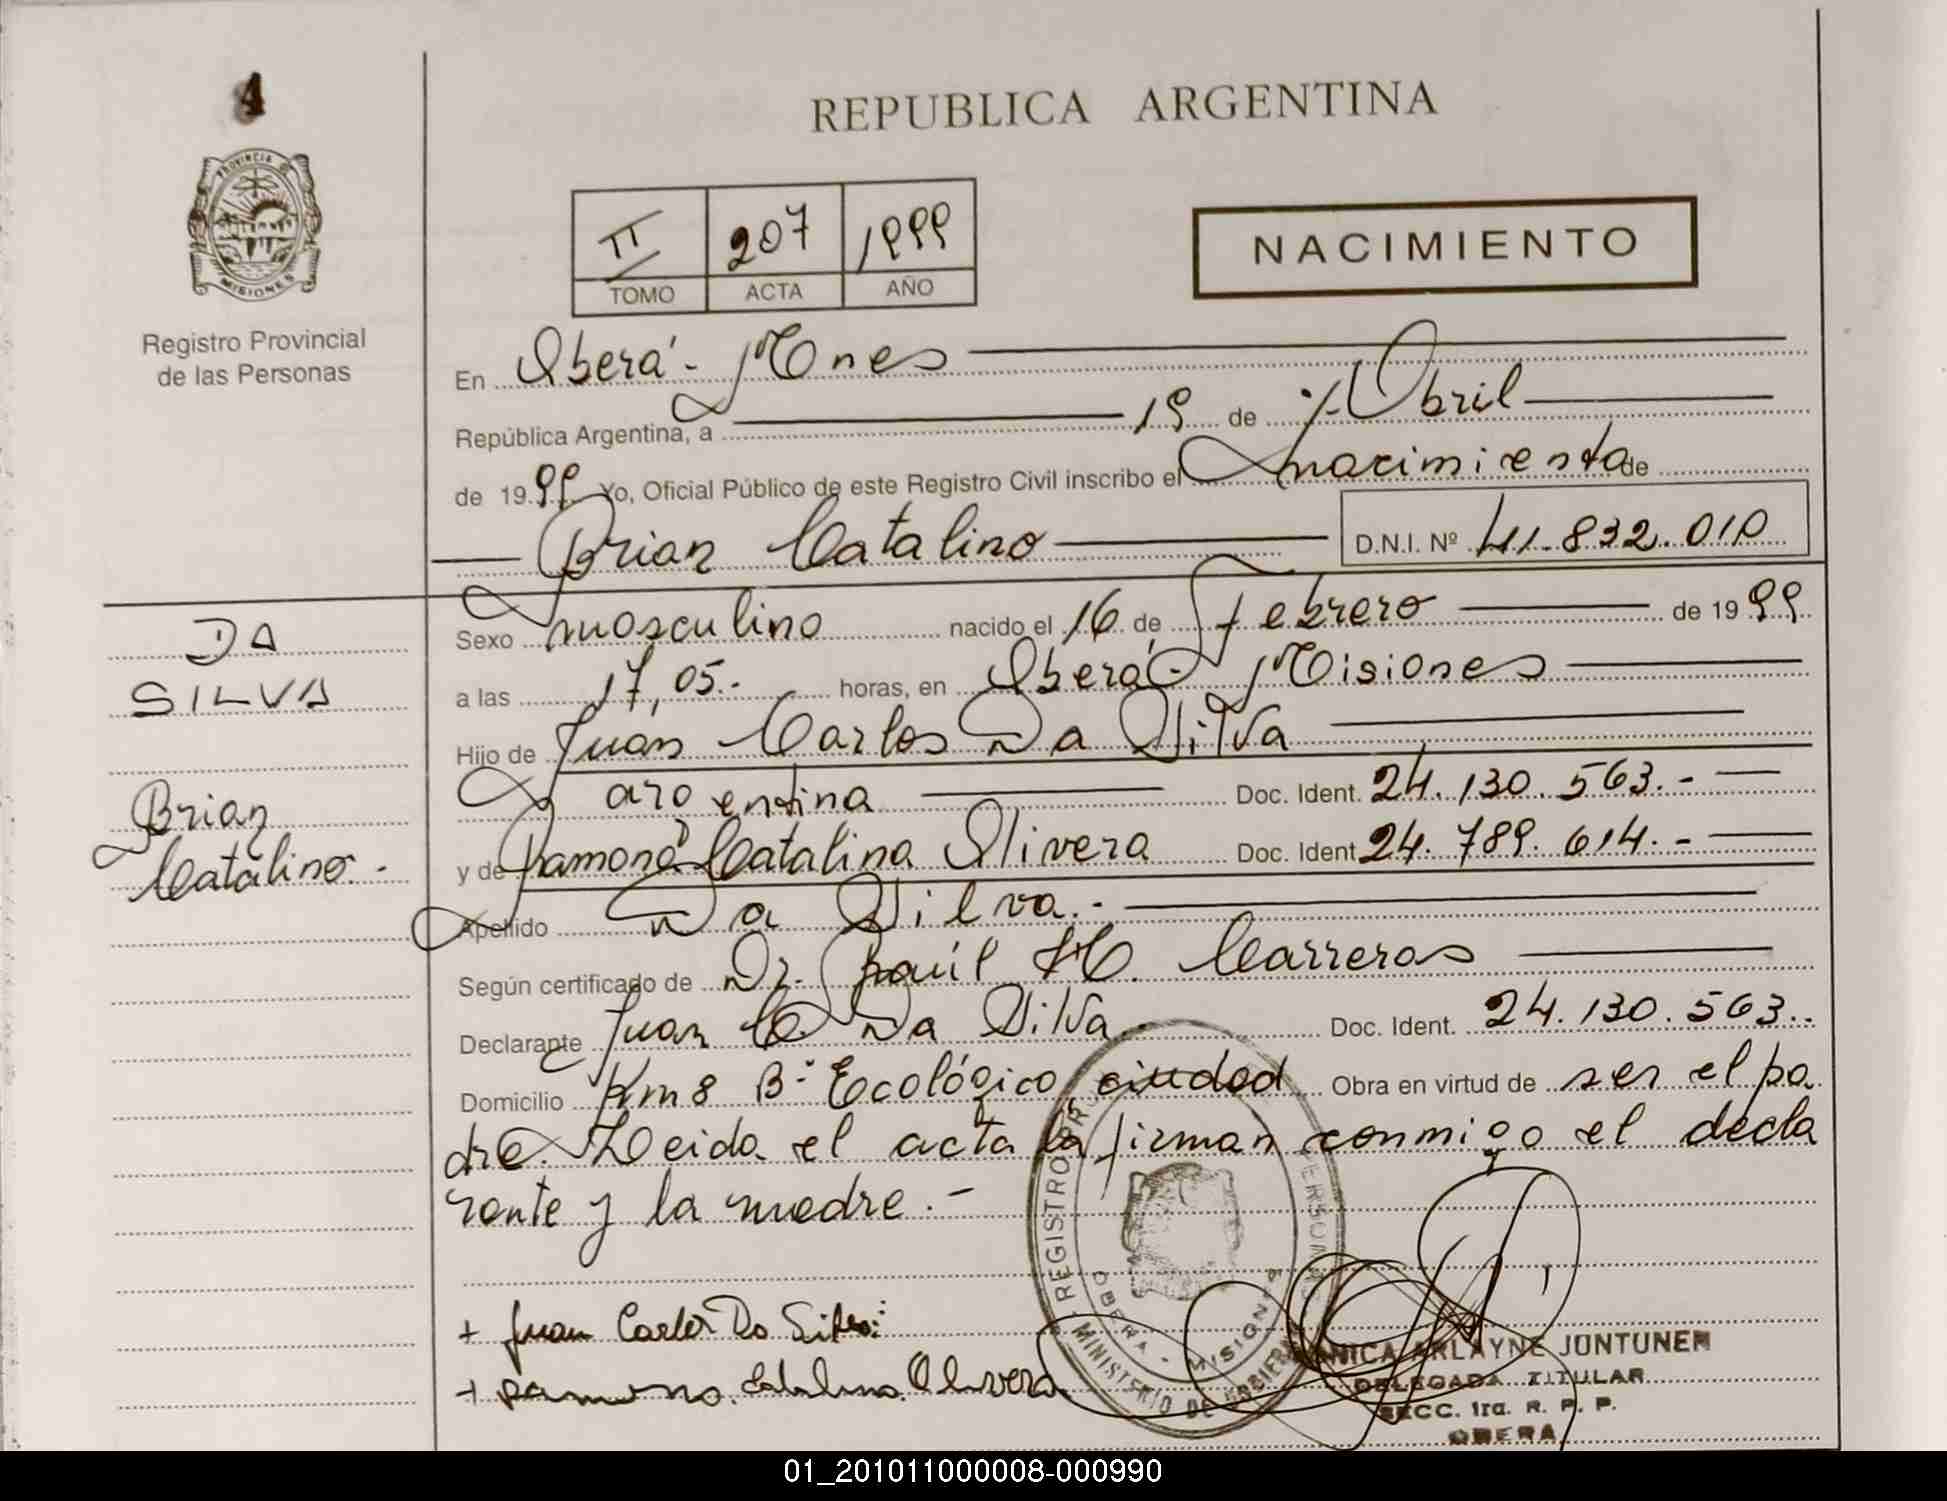 4
PROVINCIA DE
MISIONES
Registro Provincial
de las Personas
REPUBLICA ARGENTINA
II 207 1999
TOMO ACTA AÑO
NACIMIENTO
En Oberá - Mnes
República Argentina, a 19 de Abril
de 1999 Yo, Oficial Público de este Registro Civil inscribo el nacimiento de
Brian Catalino D.N.I. Nº 41.832.010
Sexo masculino nacido el 16 de Febrero de 1999
a las 17,05.- horas, en Oberá - Misiones
Hijo de Juan Carlos Da Silva
argentina Doc. Ident. 24.130.563.-
y de Ramona Catalina Olivera Doc. Ident. 24.789.614.-
Apellido Da Silva.-
Según certificado de Dr. Raúl H. Carreras
Declarante Juan C. Da Silva Doc. Ident. 24.130.563..
Domicilio Km 8 Bº Ecológico, ciudad Obra en virtud de ser el pa
dre. Leida el acta la firman conmigo el decla
rante y la madre.-
DA
SILVA
Brian
Catalino.-
+ Juan Carlos Da Silva
+ Ramona Catalina Olivera
REGISTRO
MINISTERIO DE GOBIERNO
OBERA - MISIONES
ARLAYNE JUNTUNEN
DELEGADA TITULAR
SECC. 1ra. R. P. P.
OBERA
01_201011000008-000990